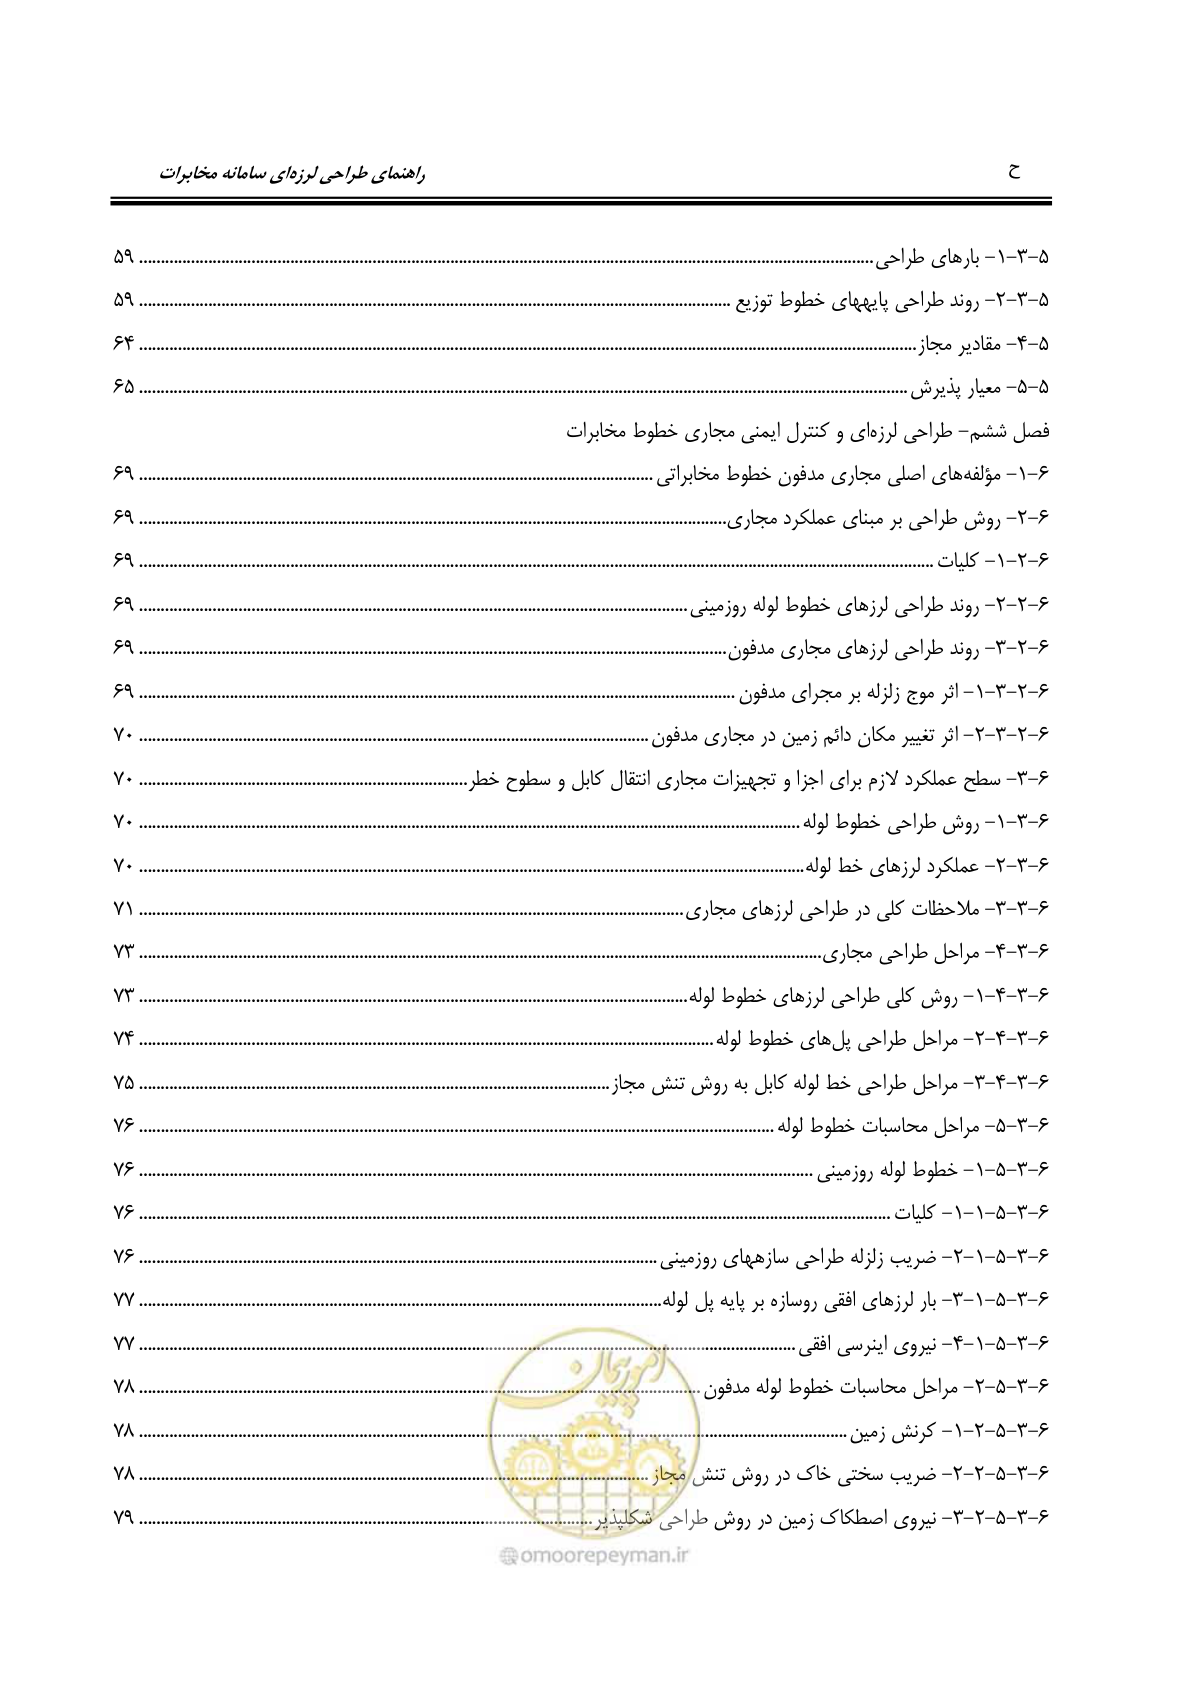 ح
راهنمای طراحی لرزه‌ای سامانه مخابرات
۵-۳-۱- بارهای طراحی ............ ۵۹
۵-۳-۲- روند طراحی پایههای خطوط توزیع ............ ۵۹
۵-۴- مقادیر مجاز ............ ۶۴
۵-۵- معیار پذیرش ............ ۶۵
فصل ششم- طراحی لرزه‌ای و کنترل ایمنی مجاری خطوط مخابرات
۶-۱- مؤلفه‌های اصلی مجاری مدفون خطوط مخابراتی ............ ۶۹
۶-۲- روش طراحی بر مبنای عملکرد مجاری ............ ۶۹
۶-۲-۱- کلیات ............ ۶۹
۶-۲-۲- روند طراحی لرزهای خطوط لوله روزمینی ............ ۶۹
۶-۲-۳- روند طراحی لرزهای مجاری مدفون ............ ۶۹
۶-۲-۳-۱- اثر موج زلزله بر مجرای مدفون ............ ۶۹
۶-۲-۳-۲- اثر تغییر مکان دائم زمین در مجاری مدفون ............ ۷۰
۶-۳- سطح عملکرد لازم برای اجزا و تجهیزات مجاری انتقال کابل و سطوح خطر ............ ۷۰
۶-۳-۱- روش طراحی خطوط لوله ............ ۷۰
۶-۳-۲- عملکرد لرزهای خط لوله ............ ۷۰
۶-۳-۳- ملاحظات کلی در طراحی لرزهای مجاری ............ ۷۱
۶-۳-۴- مراحل طراحی مجاری ............ ۷۳
۶-۳-۴-۱- روش کلی طراحی لرزهای خطوط لوله ............ ۷۳
۶-۳-۴-۲- مراحل طراحی پل‌های خطوط لوله ............ ۷۴
۶-۳-۴-۳- مراحل طراحی خط لوله کابل به روش تنش مجاز ............ ۷۵
۶-۳-۵- مراحل محاسبات خطوط لوله ............ ۷۶
۶-۳-۵-۱- خطوط لوله روزمینی ............ ۷۶
۶-۳-۵-۱-۱- کلیات ............ ۷۶
۶-۳-۵-۱-۲- ضریب زلزله طراحی سازههای روزمینی ............ ۷۶
۶-۳-۵-۱-۳- بار لرزهای افقی روسازه بر پایه پل لوله ............ ۷۷
۶-۳-۵-۱-۴- نیروی اینرسی افقی ............ ۷۷
۶-۳-۵-۲- مراحل محاسبات خطوط لوله مدفون ............ ۷۸
۶-۳-۵-۲-۱- کرنش زمین ............ ۷۸
۶-۳-۵-۲-۲- ضریب سختی خاک در روش تنش مجاز ............ ۷۸
۶-۳-۵-۲-۳- نیروی اصطکاک زمین در روش طراحی شکلپذیر ............ ۷۹
امور پیمان
@omoorepeyman.ir